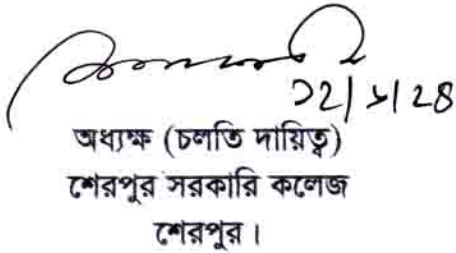 ১২/৯/২৪
অধ্যক্ষ (চলতি দায়িত্ব)
শেরপুর সরকারি কলেজ
শেরপুর।